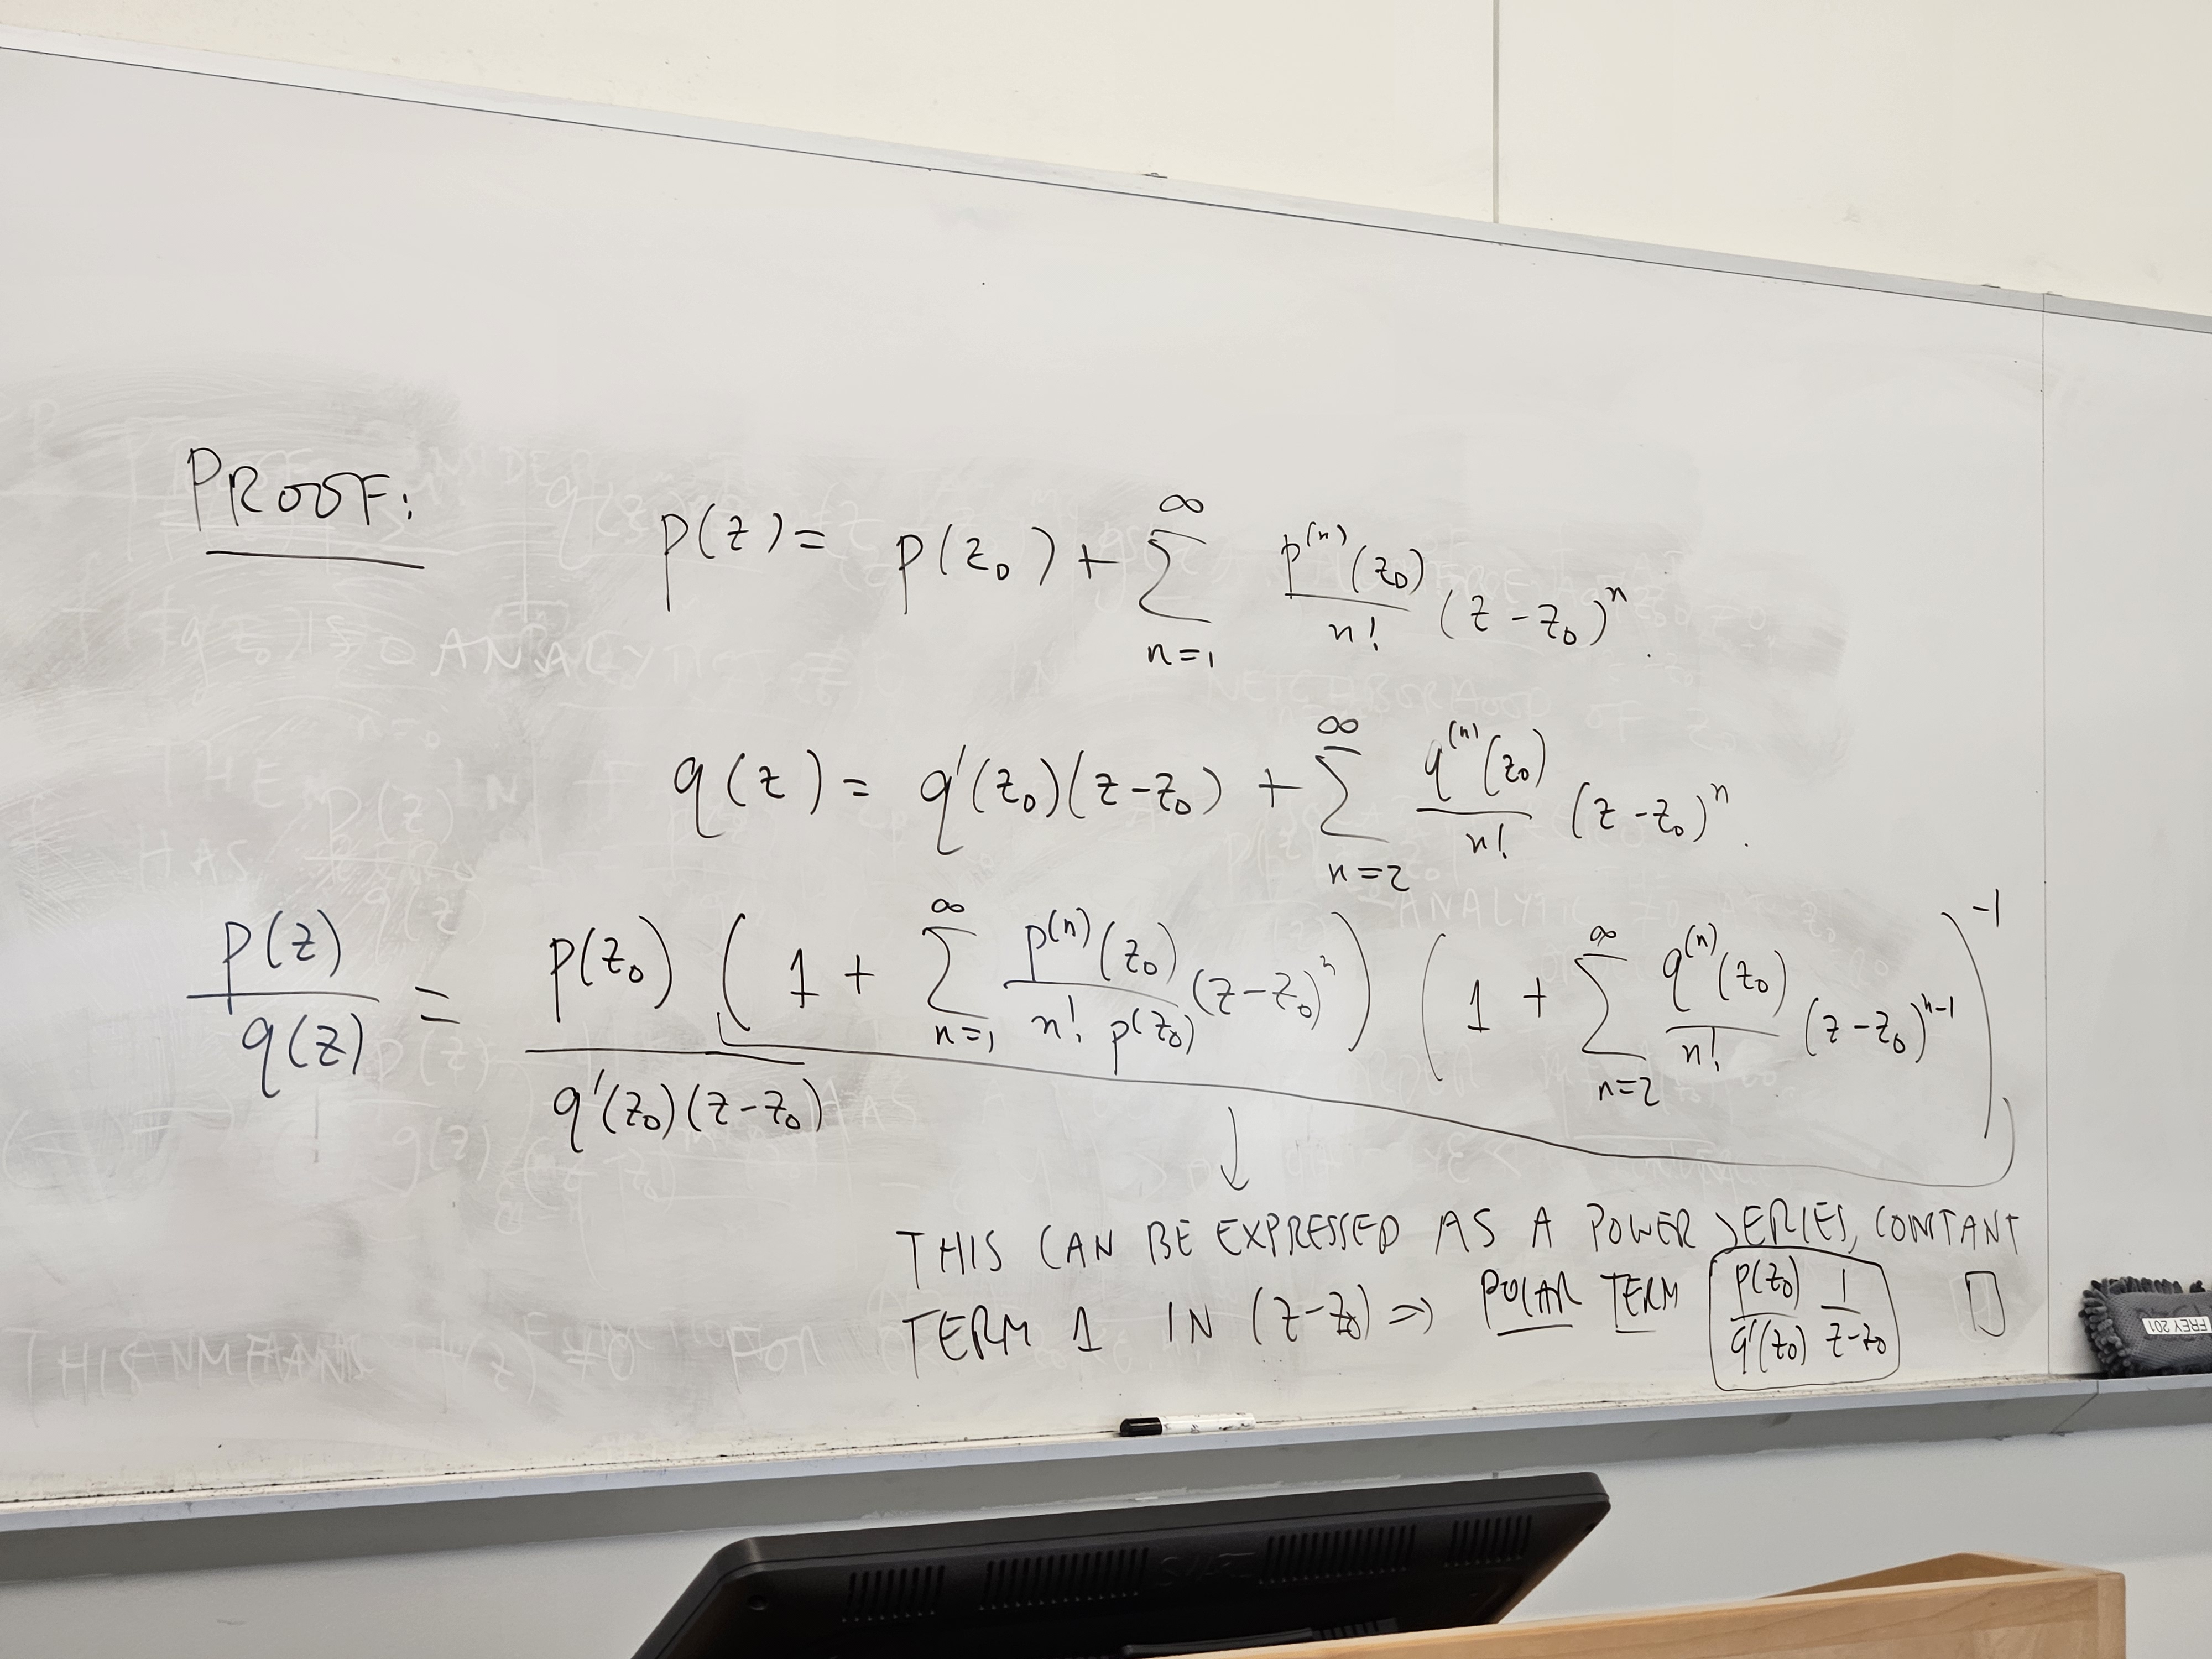 PROOF:
p(z) = p(z₀) + ∑_{n=1}^{∞} p⁽ⁿ⁾(z₀)/n! (z-z₀)ⁿ.
q(z) = q'(z₀)(z-z₀) + ∑_{n=2}^{∞} q⁽ⁿ⁾(z₀)/n! (z-z₀)ⁿ.
p(z)/q(z) = p(z₀)/(q'(z₀)(z-z₀)) (1 + ∑_{n=1}^{∞} p⁽ⁿ⁾(z₀)/(n! p(z₀)) (z-z₀)ⁿ) (1 + ∑_{n=2}^{∞} q⁽ⁿ⁾(z₀)/n! (z-z₀)ⁿ⁻¹)⁻¹
↓
THIS CAN BE EXPRESSED AS A POWER SERIES, CONTANT
TERM 1 IN (z-z₀) ⇒ POLAR TERM p(z₀)/q'(z₀) 1/(z-z₀) □
FREY 201